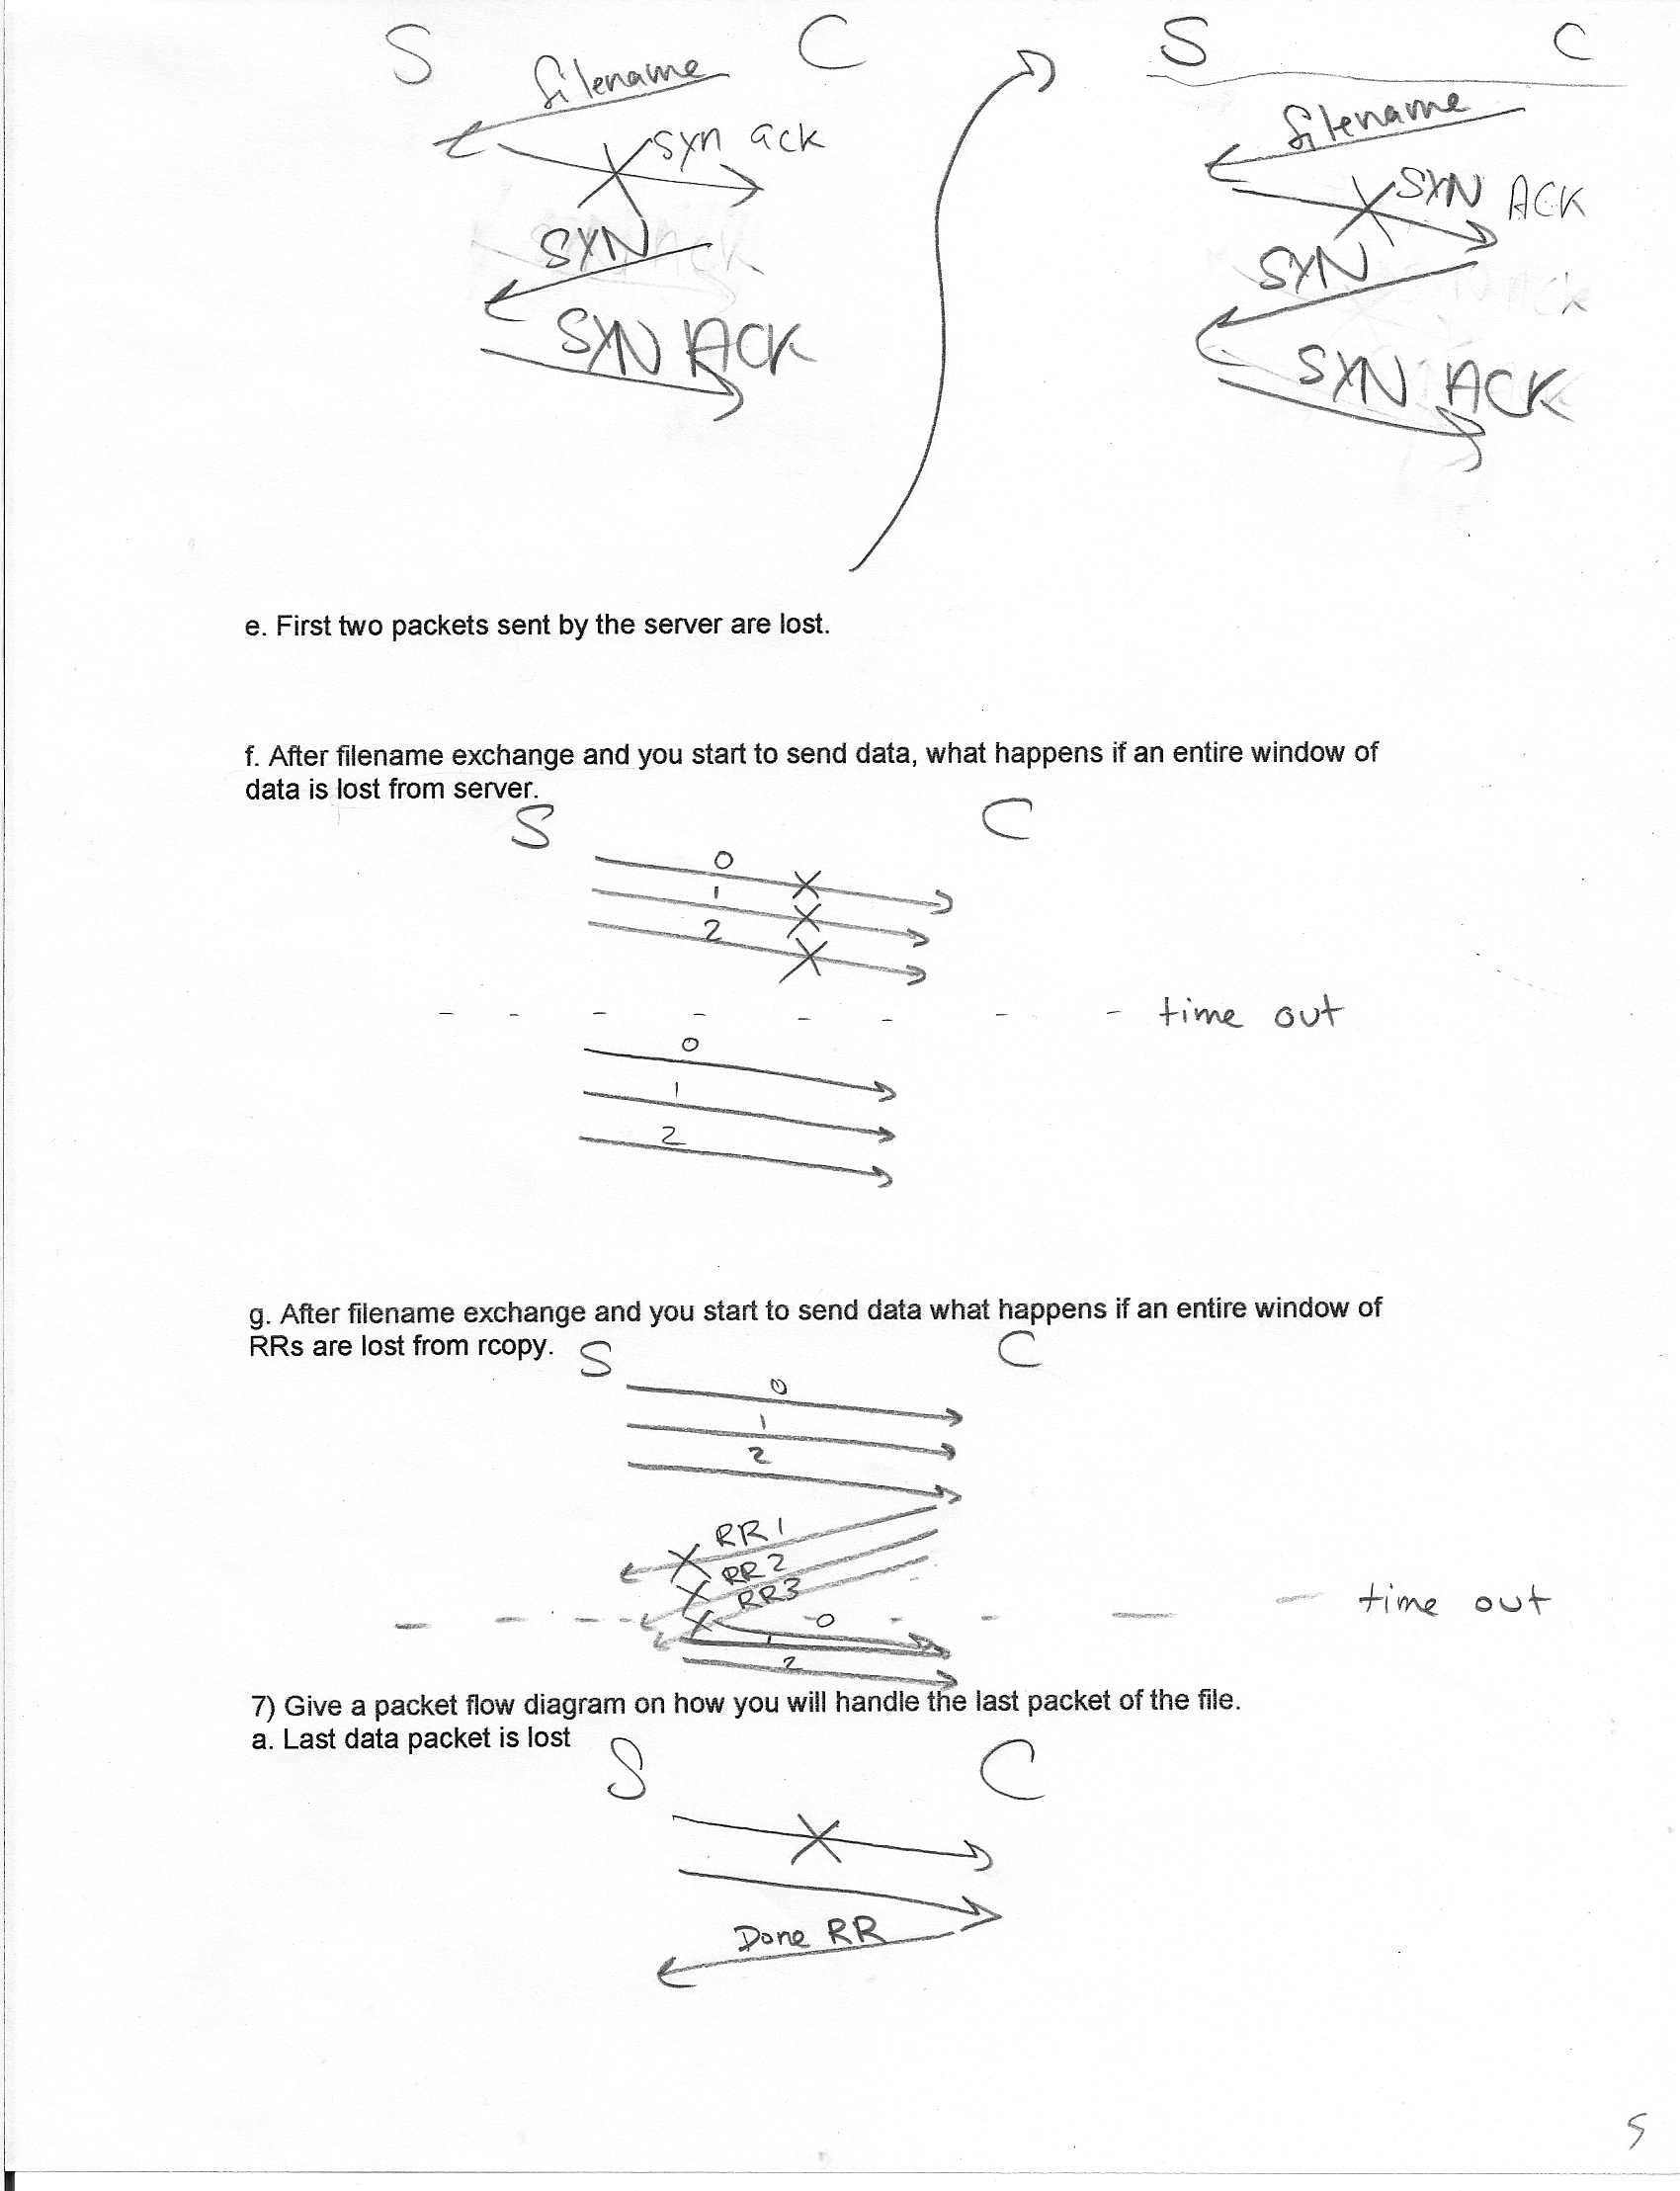 S C S C
filename
syn ack
SYN
SYN ACK
filename
SYN ACK
SYN
SYN ACK
e. First two packets sent by the server are lost.
f. After filename exchange and you start to send data, what happens if an entire window of
data is lost from server.
S C
0
1
2
time out
0
1
2
g. After filename exchange and you start to send data what happens if an entire window of
RRs are lost from rcopy.
S C
0
1
2
RR 1
RR 2
RR3
time out
0
1
2
7) Give a packet flow diagram on how you will handle the last packet of the file.
a. Last data packet is lost
S C
Done RR